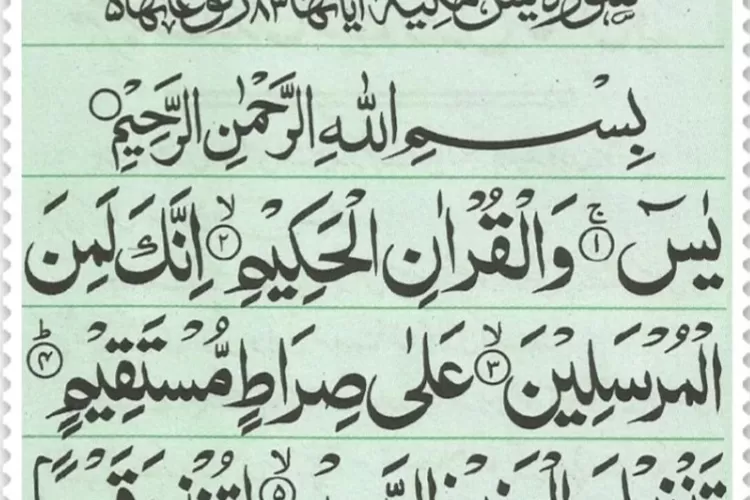 سورة يس مكية اياتها ٨٣ ركوعاتها ٥
بِسْمِ اللهِ الرَّحْمٰنِ الرَّحِيْمِ
يٰسٓ ۚ ﴿١﴾ وَالْقُرْاٰنِ الْحَكِيْمِ ۙ ﴿٢﴾ اِنَّكَ لَمِنَ
الْمُرْسَلِيْنَ ۙ ﴿٣﴾ عَلٰى صِرَاطٍ مُّسْتَقِيْمٍ ؕ ﴿۴﴾